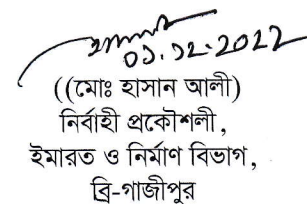 ০১.১২.2022
((মোঃ হাসান আলী)
নির্বাহী প্রকৌশলী,
ইমারত ও নির্মাণ বিভাগ,
ব্রি-গাজীপুর